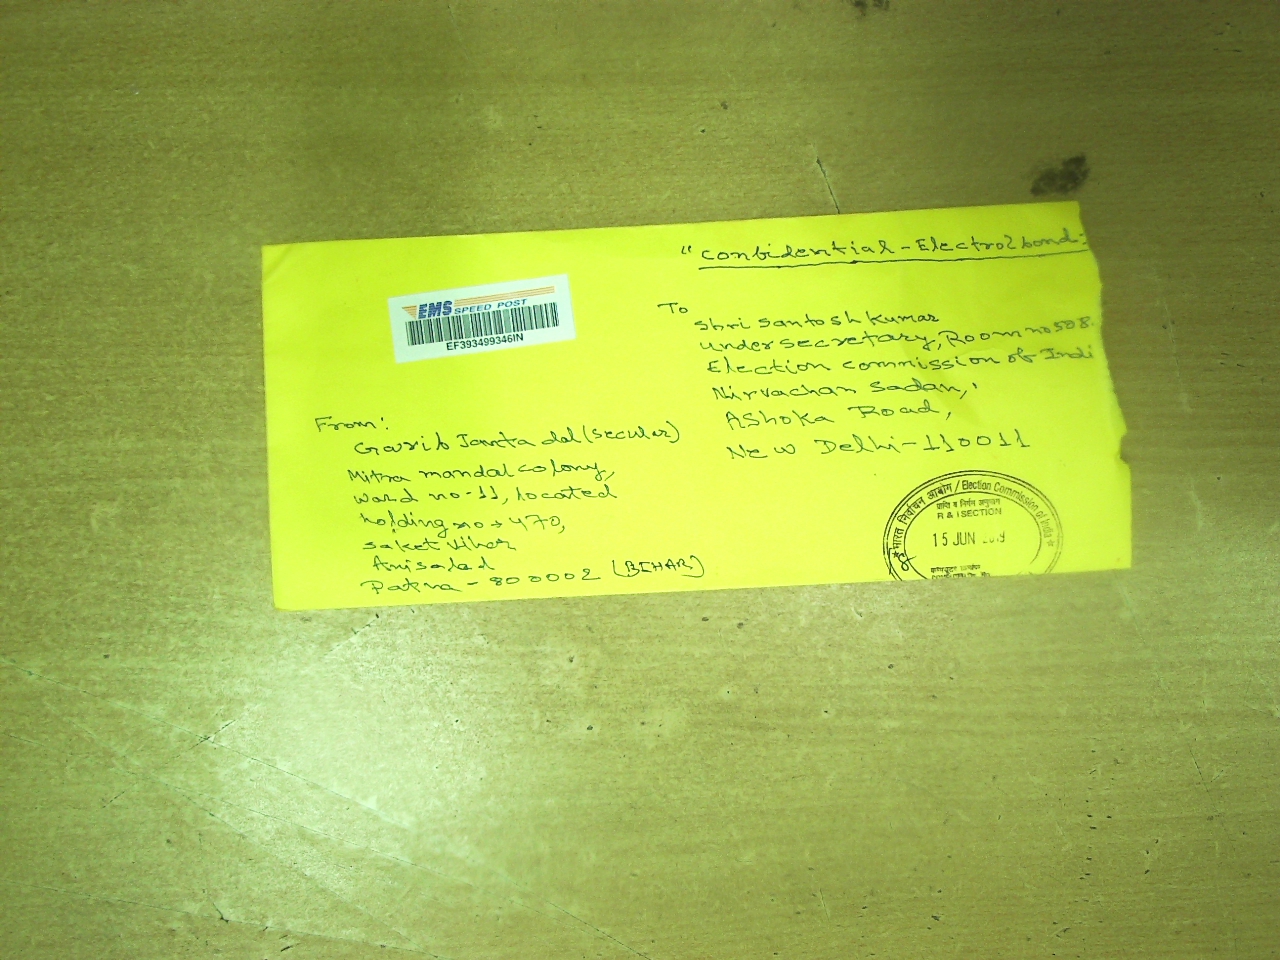 "Confidential - Electrol bond:
EMS SPEED POST
EF393499346IN
To
Shri Santosh Kumar
Under secretary, Room no 508.
Election commission of Indi
Nirvachan Sadan,
AShoka Road,
New Delhi-110011
From:
Garib Janta dal (Secular)
Mitra mandal colony,
Ward no-11, located
holding no → 470,
Saket Vihar
Anisabad
Patna - 800002 (BIHAR)
भारत निर्वाचन आयोग / Election Commission of India
प्राप्ति व निर्गम अनुभाग
R & I SECTION
15 JUN